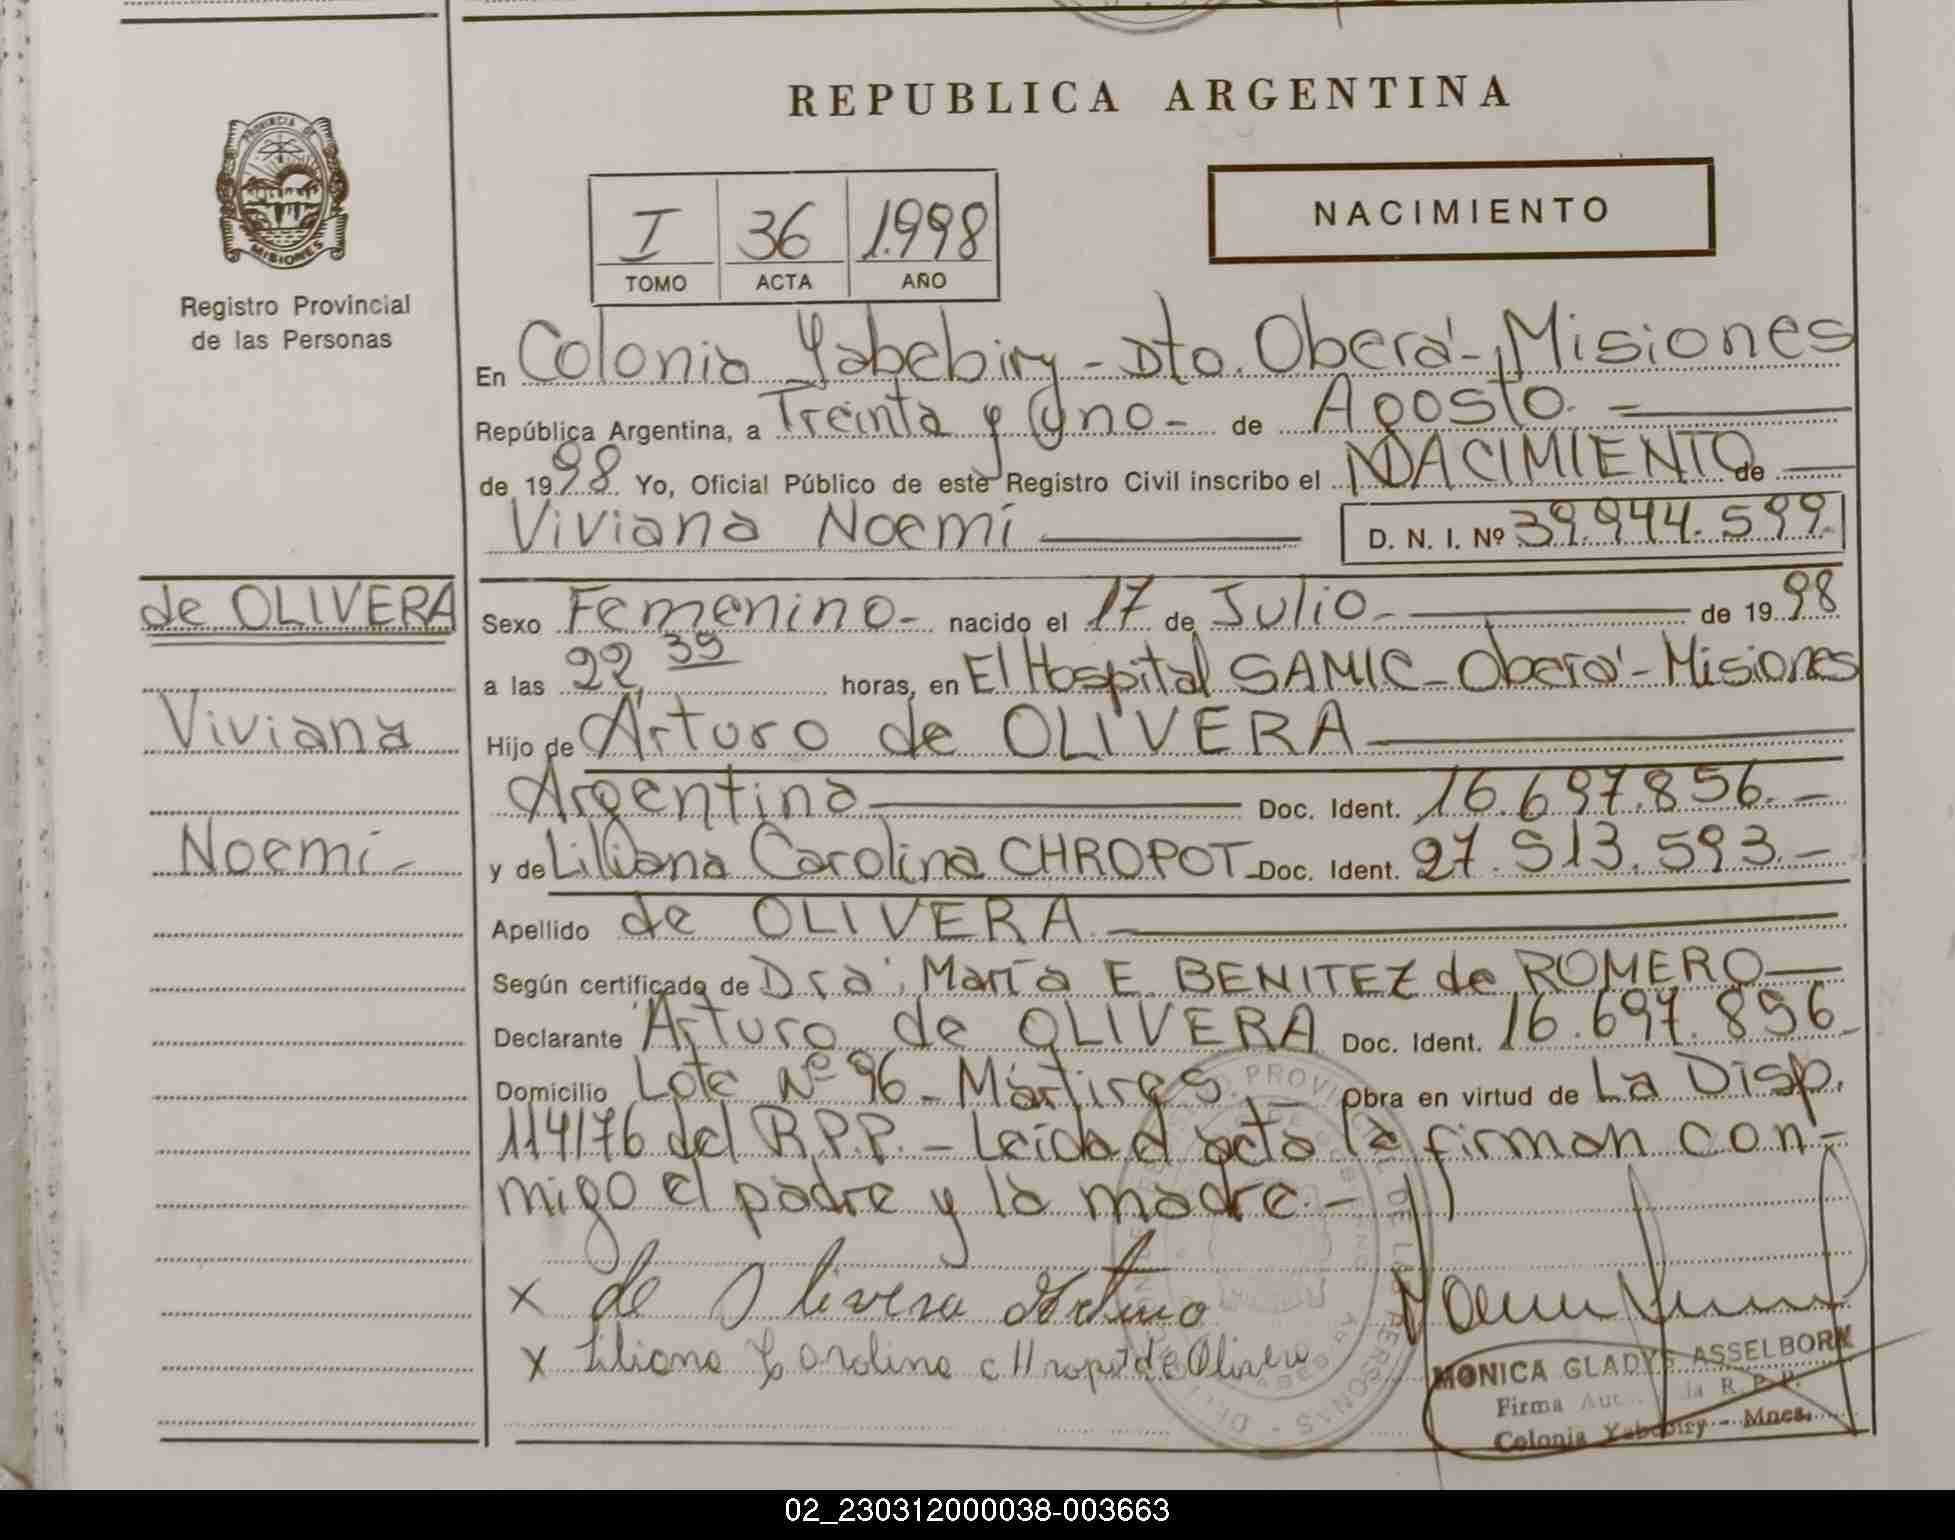 REPUBLICA ARGENTINA
PROVINCIA DE
MISIONES
Registro Provincial
de las Personas
I 36 1.998
TOMO ACTA AÑO
NACIMIENTO
En Colonia Yabebiry - Dto. Oberá - Misiones
República Argentina, a Treinta y Uno - de Agosto. -
de 1998. Yo, Oficial Público de este Registro Civil inscribo el NACIMIENTO de
Viviana Noemí D. N. I. Nº 39.944.599.
de OLIVERA
Viviana
Noemí -
Sexo Femenino - nacido el 17 de Julio - de 1998
a las 22, 39 horas, en El Hospital SAMIC - Oberá - Misiones
Hijo de Arturo de OLIVERA
Argentina Doc. Ident. 16.697.856. -
y de Liliana Carolina CHROPOT - Doc. Ident. 27.513.593. -
Apellido de OLIVERA. -
Según certificado de Dra. María E. BENITEZ de ROMERO
Declarante Arturo de OLIVERA Doc. Ident. 16.697.856
Domicilio Lote Nº 96 - Mártires Obra en virtud de La Disp.
114/76 del R.P.P. - Leída el acta la firman con-
migo el padre y la madre. -
x de Olivera Arturo
x Liliana Carolina Chropot de Olivera
MONICA GLADYS ASSELBORN
Firma Aut. la R. P. P.
Colonia Yabebiry - Mnes.
02_230312000038-003663